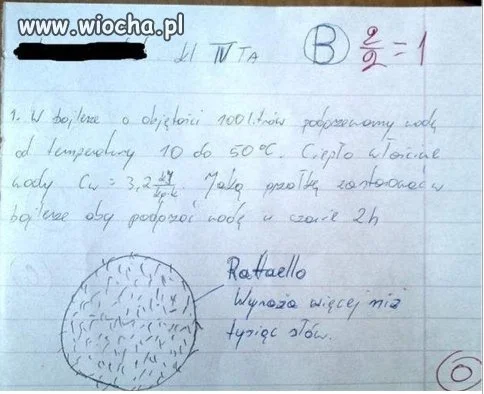 www.wiocha.pl
kl IV TA
B 2/2 = 1
1. W bojlerze o objętości 100 litrów podgrzewamy wodę
od temperatury 10 do 50°C. Ciepło właściwe
wody Cw = 3,2 kJ/kg·K. Jaką grzałkę zastosować w
bojlerze aby podgrzać wodę w czasie 2h
Raffaello
Wyraża więcej niż
tysiąc słów.
0